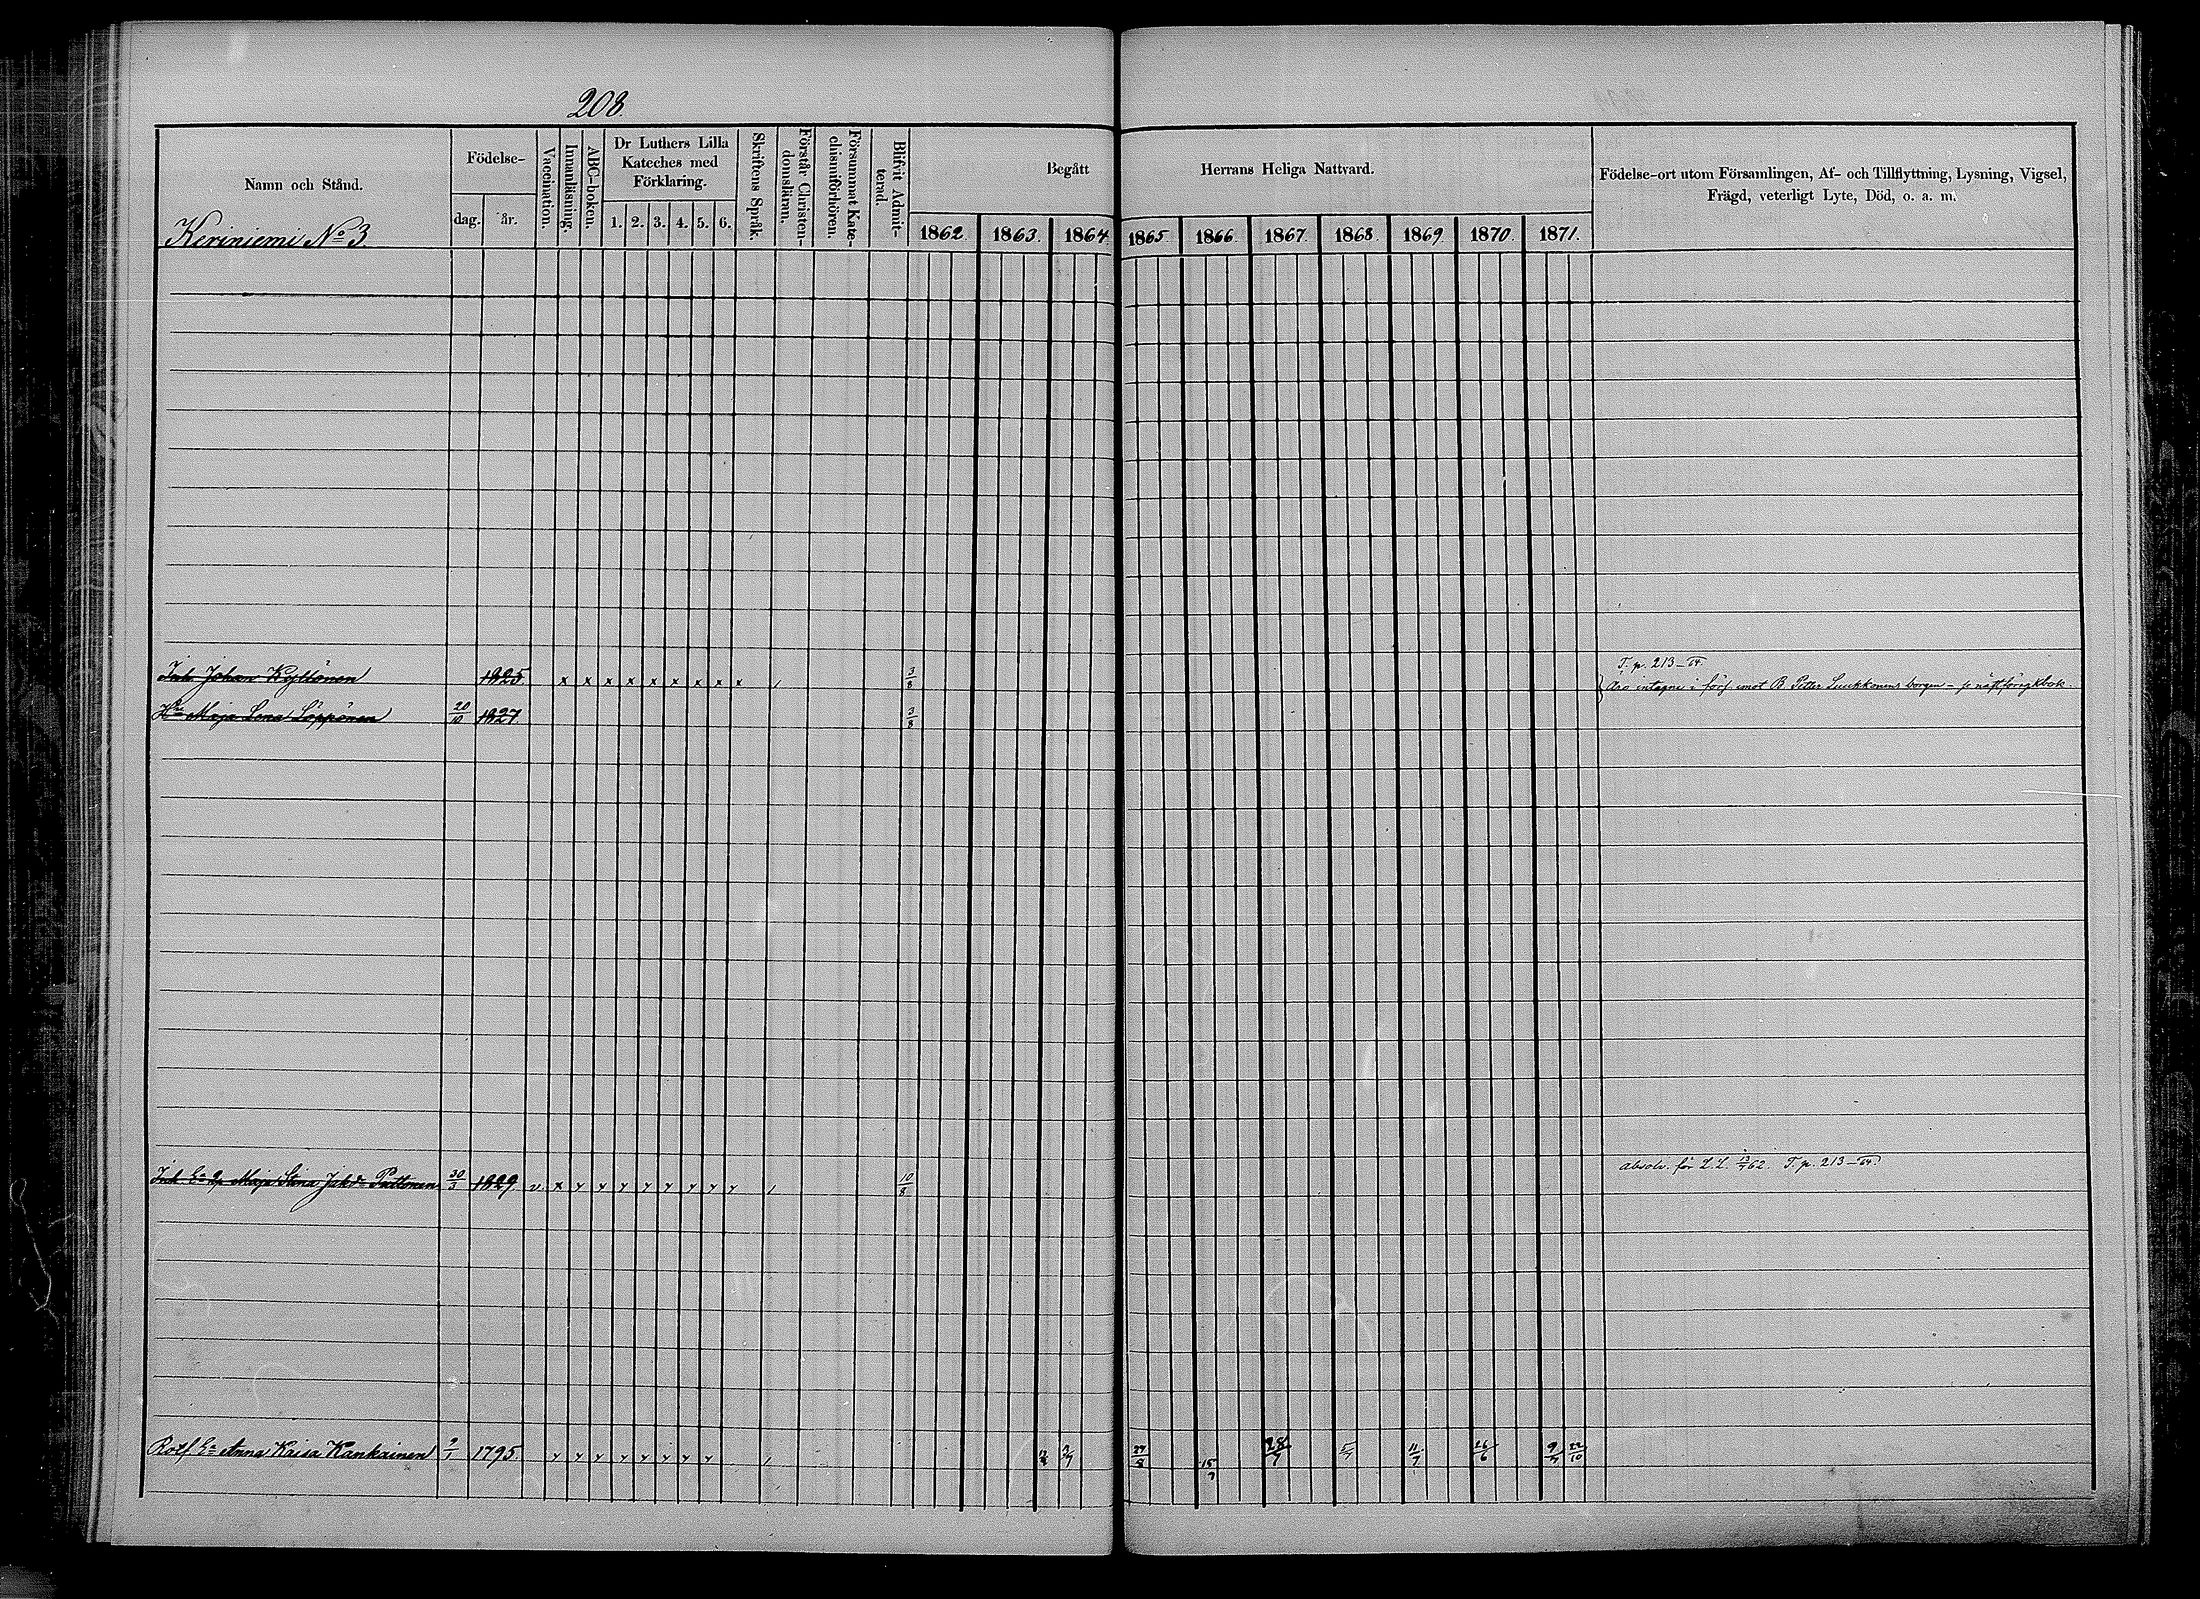 208.
Namn och Stånd.
Födelse-
dag. år.
Vaccination.
Innanläsning.
ABC-boken.
Dr Luthers Lilla
Kateches med
Förklaring.
1. 2. 3. 4. 5. 6.
Skriftens Språk.
Förstår Christen-
domsläran.
Försummat Kate-
chismiförhören.
Blifvit Admit-
terad.
Begått Herrans Heliga Nattvard.
1862. 1863. 1864. 1865. 1866. 1867. 1868. 1869. 1870. 1871.
Födelse-ort utom Församlingen, Af- och Tillflyttning, Lysning, Vigsel,
Frägd, veterligt Lyte, Död, o. a. m.
Keriniemi No 3.
T. p. 213-64.
Inh Johan Kyllönen 1825. x x x x x x x x x 3/8 Äro intagne i förs. emot B. Peter Luukkonens borgen
Hu Maja Lena Löppönen 20/10 1827. 3/8
Absolv. för L. L. 13/7 62. T. p. 213-64.
Inh Ea Qp Maja Stina Jakdr Puttonen 30/3 1829 v. x y y y y y y y y 10/8
Rotf Ea Anna Kaisa Kankainen 9/1 1795. y y y y y y y y 3/7 27/8 15/7 28/7 5/7 11/7 26/6 9/7 22/10